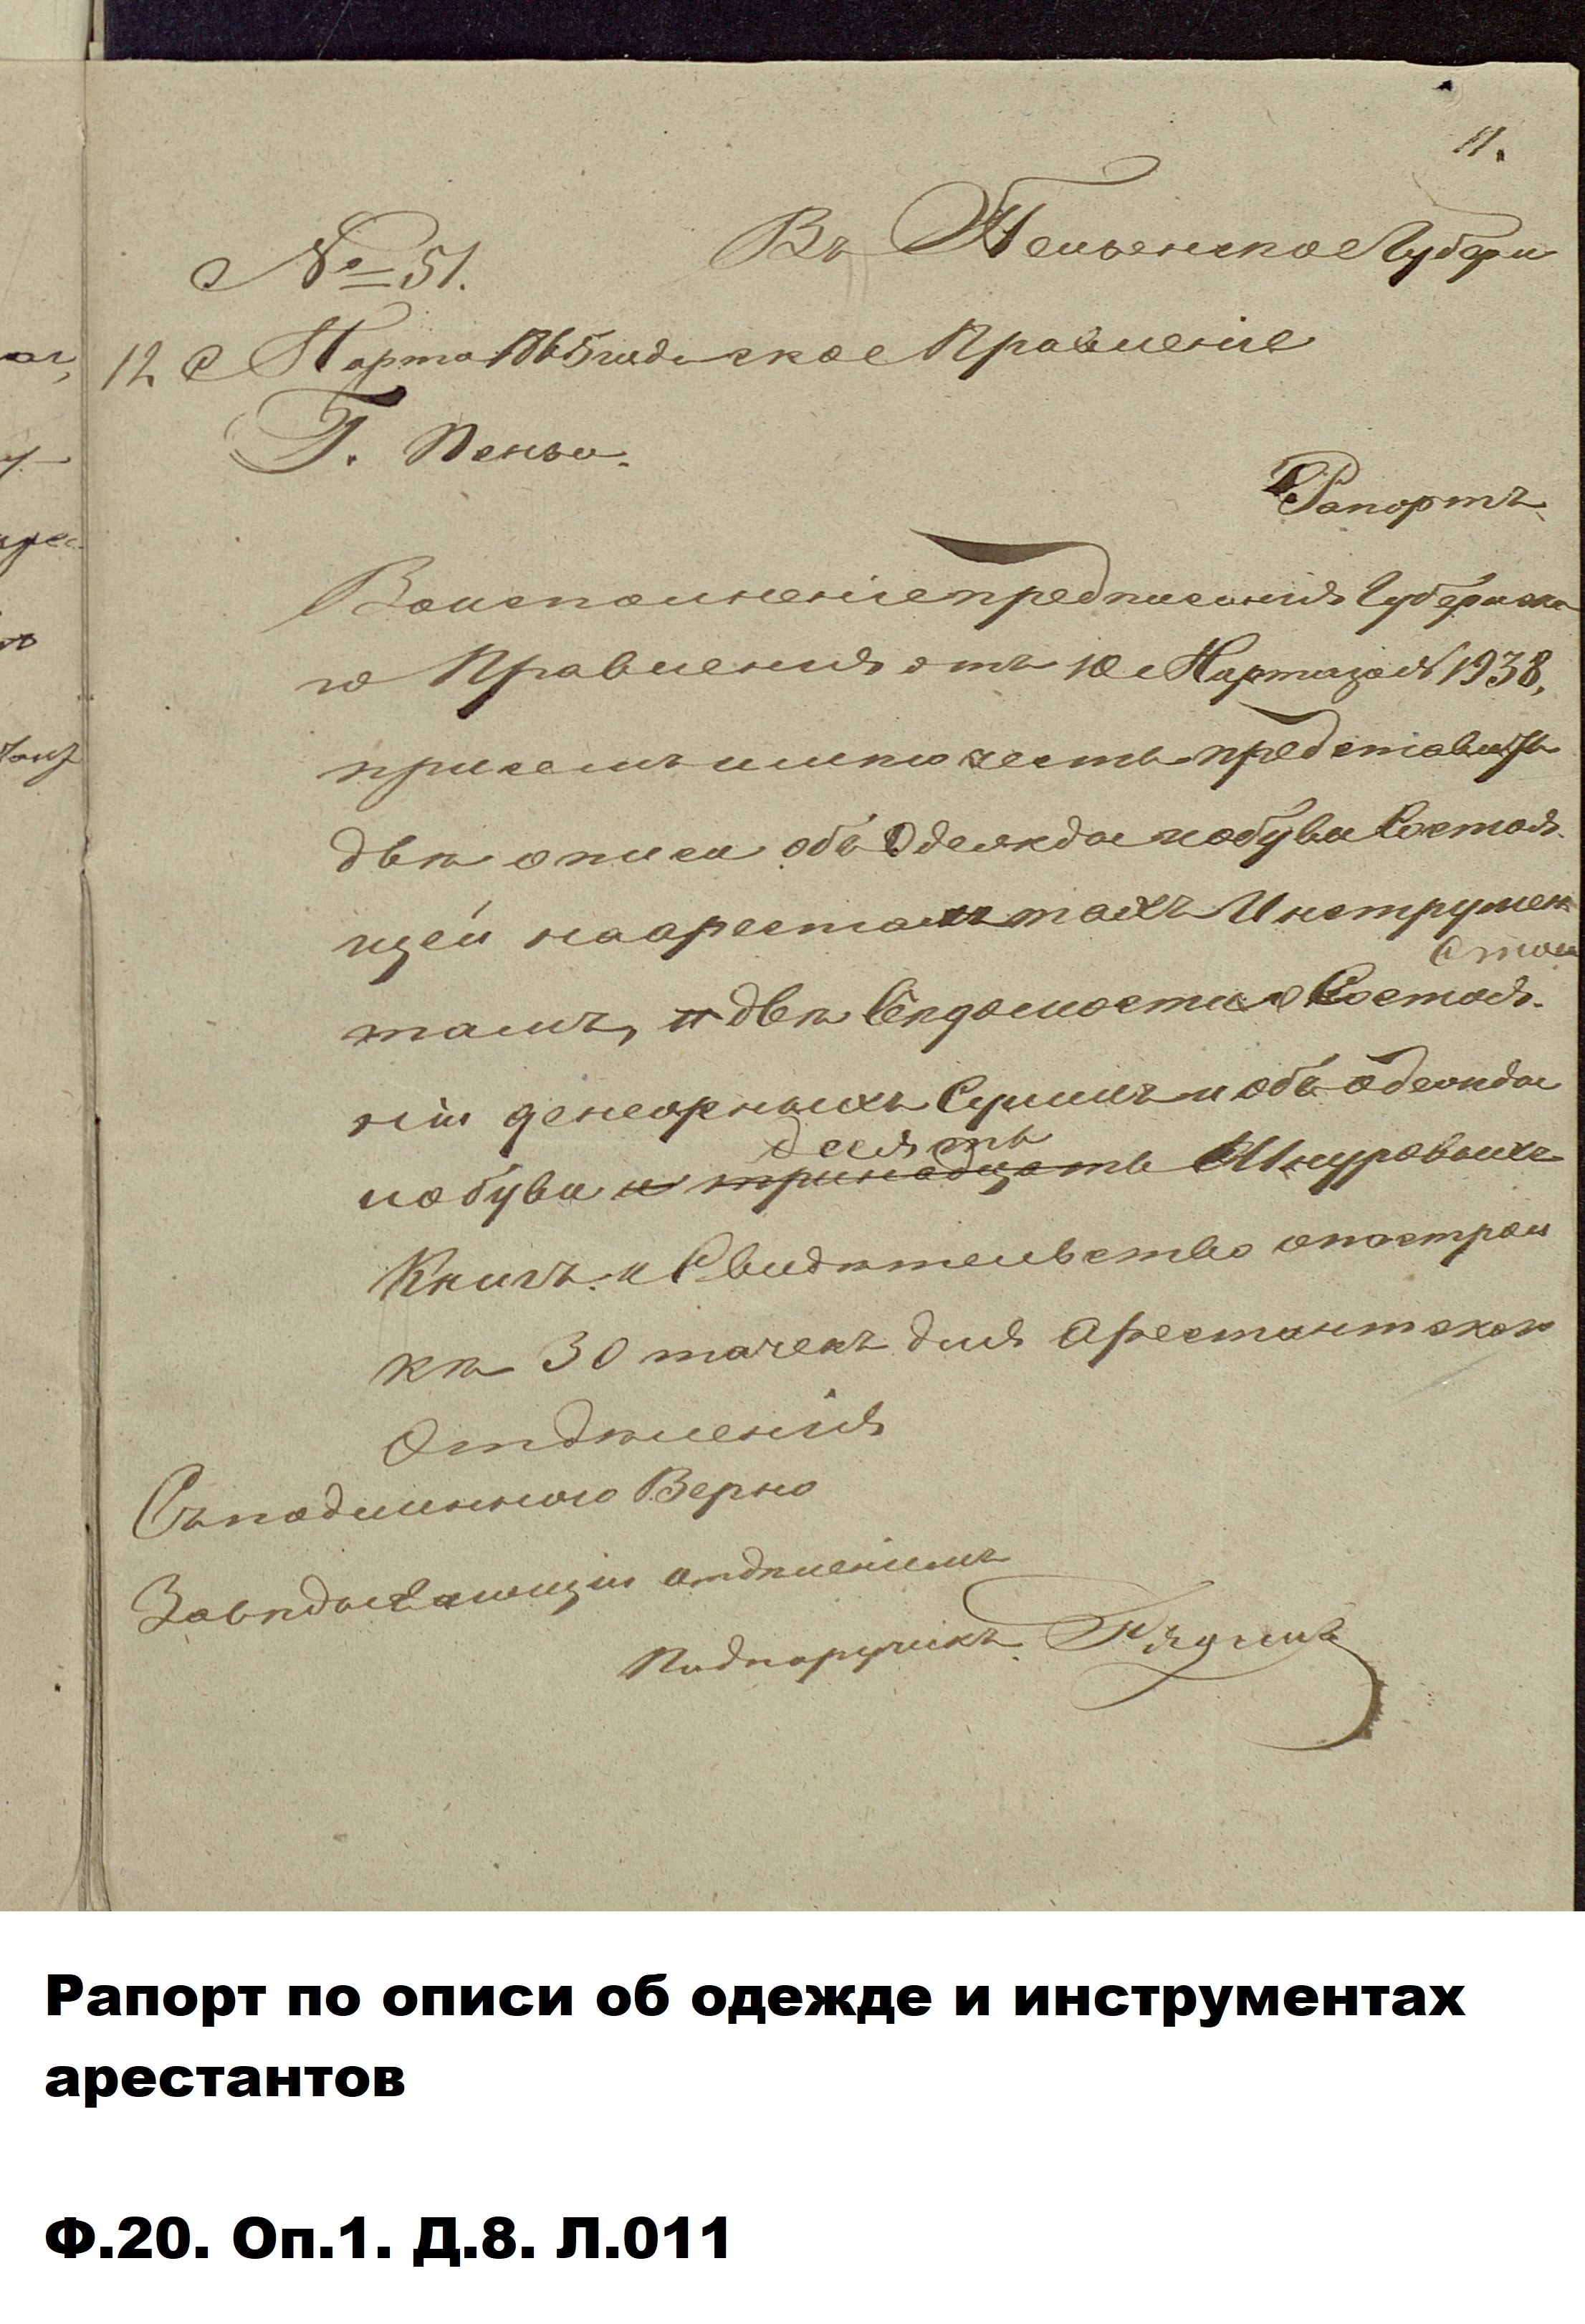 11.
№ 51.
Въ Пензенское Губерн
12 Марта 1865 года
ское Правленіе
Г. Пенза.
Рапортъ
Во исполненіе предписанія Губернска
го Правленія отъ 10 Марта за № 1938,
при семъ имѣю честь представить
двѣ описи объ Одежды и обуви Состоя
щей на арестантахъ Инструмен
тамъ, и двѣ Вѣдомости о Состоя
ніи денежныхъ Суммъ и объ одежды
и обуви и тринадцать Шнуровыхъ
десять
Книгъ и Свидѣтельство о построй
кѣ 30 тачекъ для Арестантскаго
Отдѣленія
Съ подлиннымъ Верно
Завѣдывающій отдѣленіемъ
Подпоручикъ
Рапорт по описи об одежде и инструментах
арестантов
Ф.20. Оп.1. Д.8. Л.011